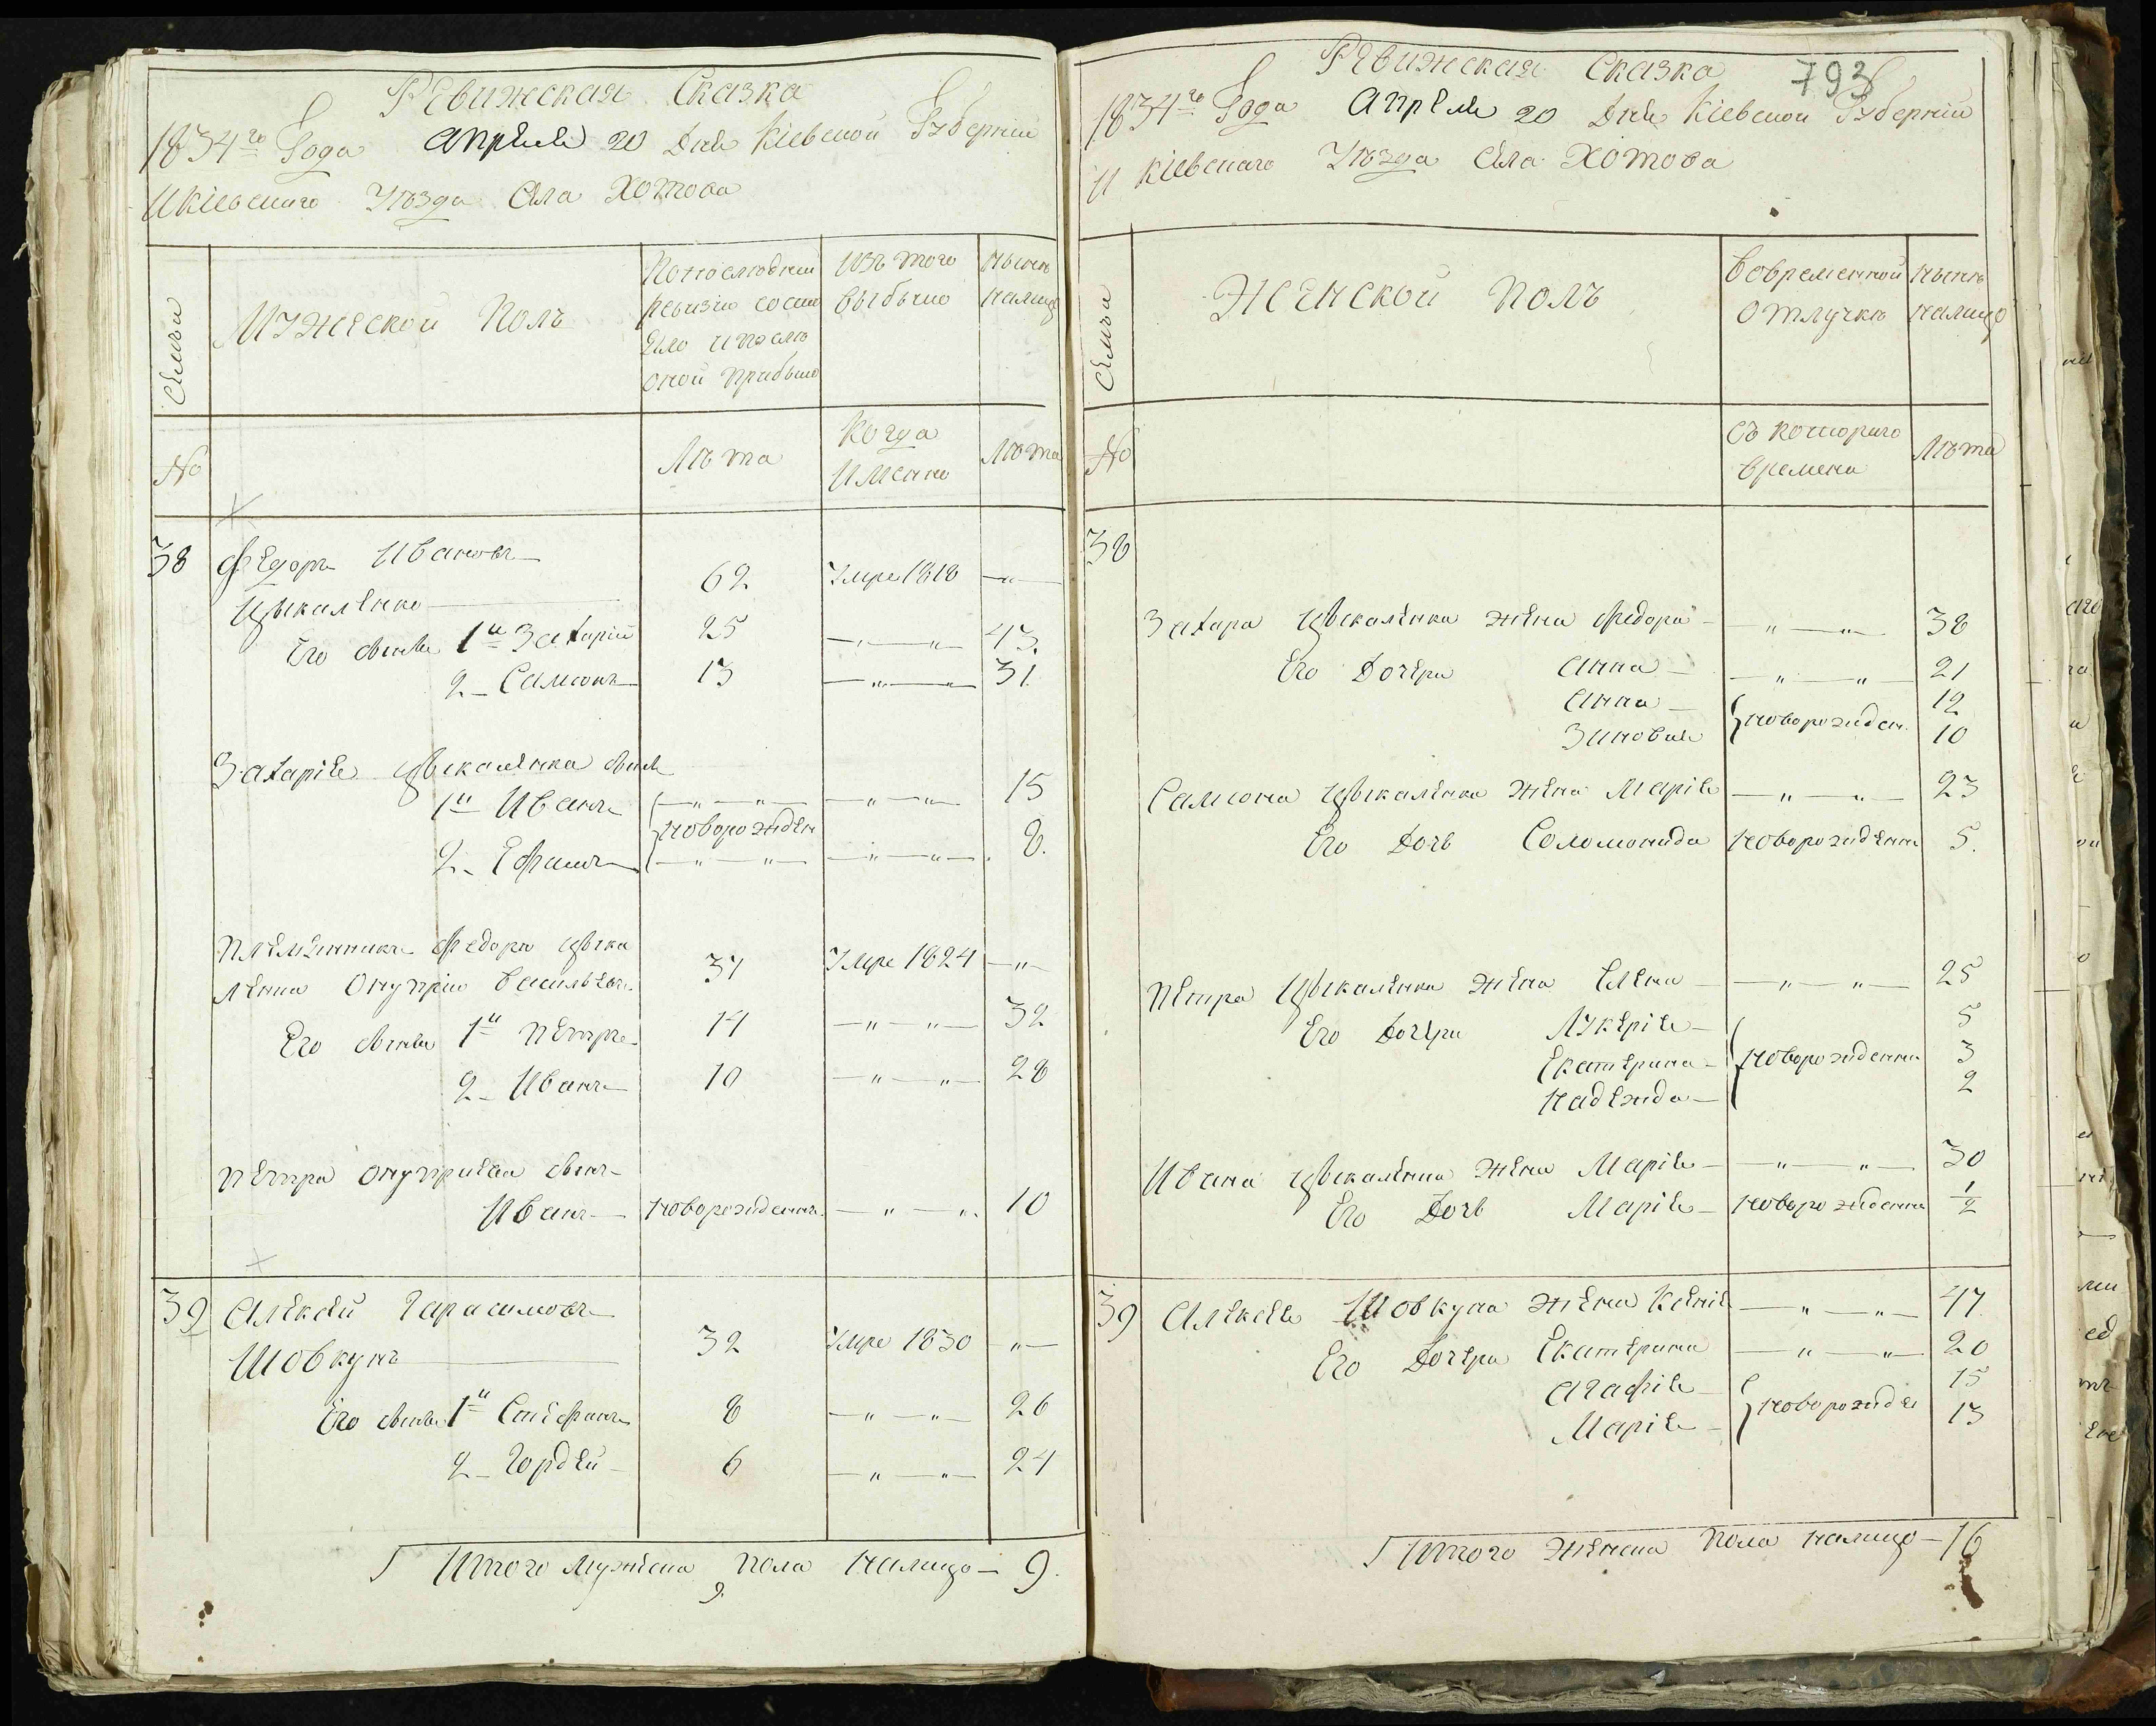 Ревижская Сказка
1834го Года Апреля 20 Дня Кіевской Губерніи
И Кіевскаго Уѣзда Села Хотова
Семьи
Мужеской Полъ
Попослюдней
ревизіи состо
яло и послѣ
оной прибыло
Изъ того
выбыло
Нынѣ
налицо
№
Лѣта
Когда
Имено
Лѣта
38 Федоръ Ивановъ
Цыкаленко 62 Умре 1818 — " —
Его сыновья 1й Захарій 25 — " — " — 43.
2 — Самсонъ 13 — " — 31.
Захарія Цыкаленка сыновья
1й Иванъ — " — " — — " — " — 15
новорожден
2 — Ефимъ — " — " — — " — " — 8.
Племянникъ Федора Цыка
ленка Онуприй Васильевъ 37 Умре 1824 — " —
Его сыновья 1й Петръ 14 — " — " — 32
2 — Иванъ 10 — " — " — 28
Петра Онуприева сынъ
Иванъ новорожденнъ. — " — ". 10
39 Алексей Гарасимовъ
Шовкунъ 32 Умре 1830 — " —
Его сыновья 1й Стефанъ 8 — " — " — 26
2 — Гордей 6 — " — " — 24
Итого мужеска пола налицо — 9.
9.
793
Ревижская Сказка
1834го Года Апреля 20 Дня Кіевской Губерніи
И Кіевскаго Уѣзда Села Хотова
Семьи
Женской Полъ
Вовременной
Отлучкѣ
Нынѣ
налицо
№
Съ котораго
времена
Лѣта
38
Захара Цыкаленка жена Федора — " — " — 38
Его Дочери Анна — " — " — 21
Анна — 12
новорожден.
Зиновия 10
Самсона Цыкаленка жена Марія — " — " — 23
Его Дочь Соломонида новорожденна 5.
Петра Цыкаленка жена Елена — " — " — 25
Его Дочери Лукерія — 5
Екатерина — новорожденны 3
Надежда — 2
Ивана Цыкаленка жена Марія — " — " — 30
Его Дочь Марія — новорожденна 1/2
39 Алексея Шовкуна жена Ксенія — " — " — 47
Его Дочери Екатерина — " — " — 20
Агафія — 15
новорожде
Марія — 13
Итого Женска Пола налицо — 16